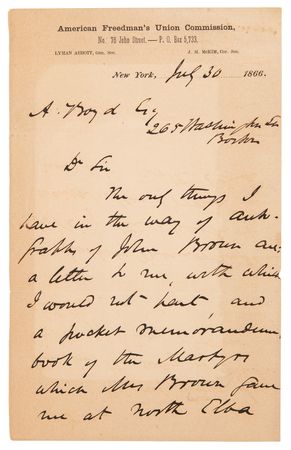 American Freedman's Union Commission,
No. 76 John Street.—P. O. Box 5,733.
LYMAN ABBOTT, Gen. Sec. J. M. McKIM, Cor. Sec.
New York, July 30 1866.
A. Boyd Esq
265 Washington St
Boston
Dr Sir
The only things I
have in the way of auto-
graphs of John Brown are
a letter to me, with which
I would not part, and
a pocket memorandum
book of the Martyrs
which Mrs Brown gave
me at North Elba